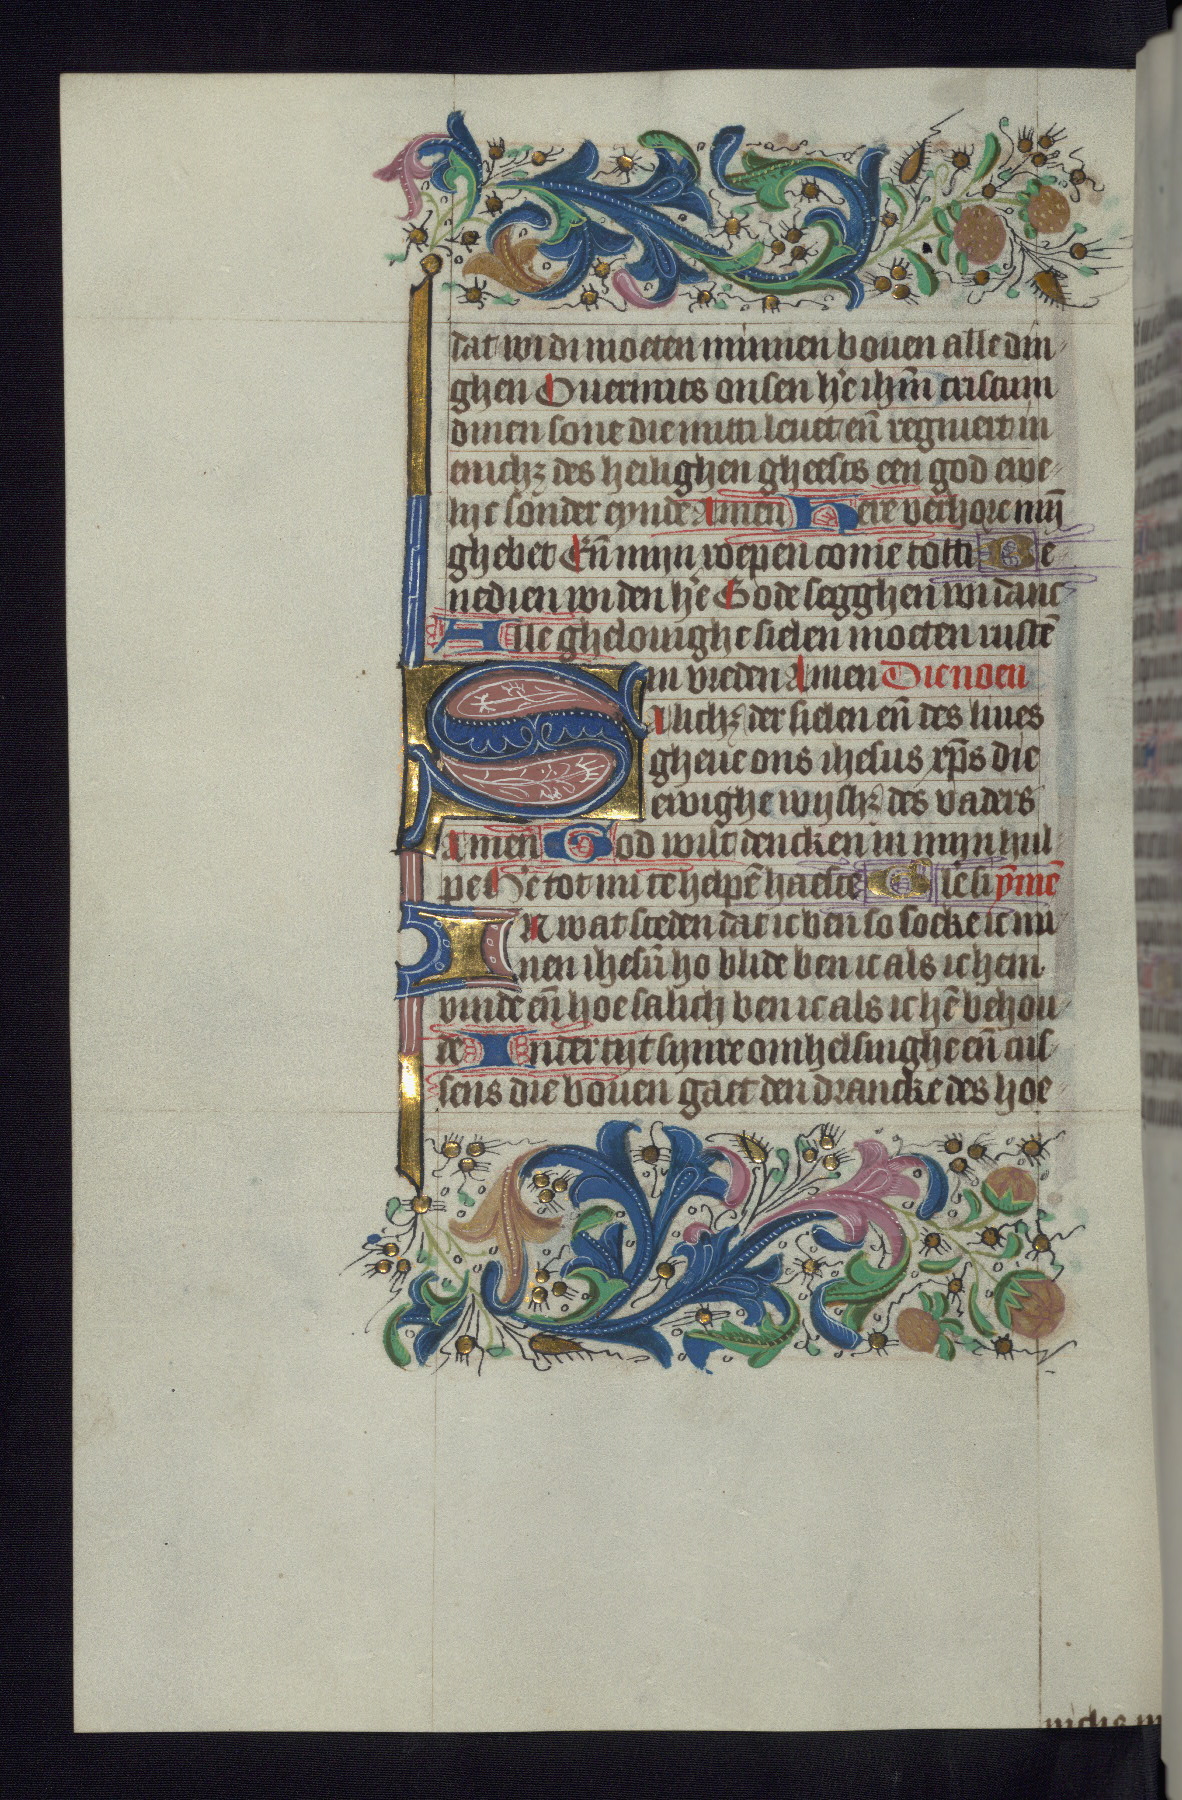 dat wi di moeten minnen bouen alle din
ghen Ouermits onsen hẽ ihm̃ cristum
dinen sone die mitti leuet eñ regniert in
enichꝫ des heilighen gheests een god ewe
lijc sonder eynde Amen Here verhore mijn̄
ghebet Eñ mijn roepen come totti Be
nedien wi den hẽ Gode segghen wi danc
Alle ghelouighe sielen moeten rustē
in vreden Amen Die noen
SAlichꝫ der sielen eñ des liues
gheue ons ihesus xp̄s die
ewighe wijshꝫ des vaders
Amen God wilt dencken in mijn hul
pe Hẽ tot mi te helpē haeste Glesi ȳmē
In wat steden dat ic ben so socke ic mi
nen ihesū ho blide ben ic als ic hem
vinde eñ hoe salich ben ic als ic hē behou
de Inder tijt sijnre omhelsinghe eñ cus
sens die bouen gaet den drancke des hoe